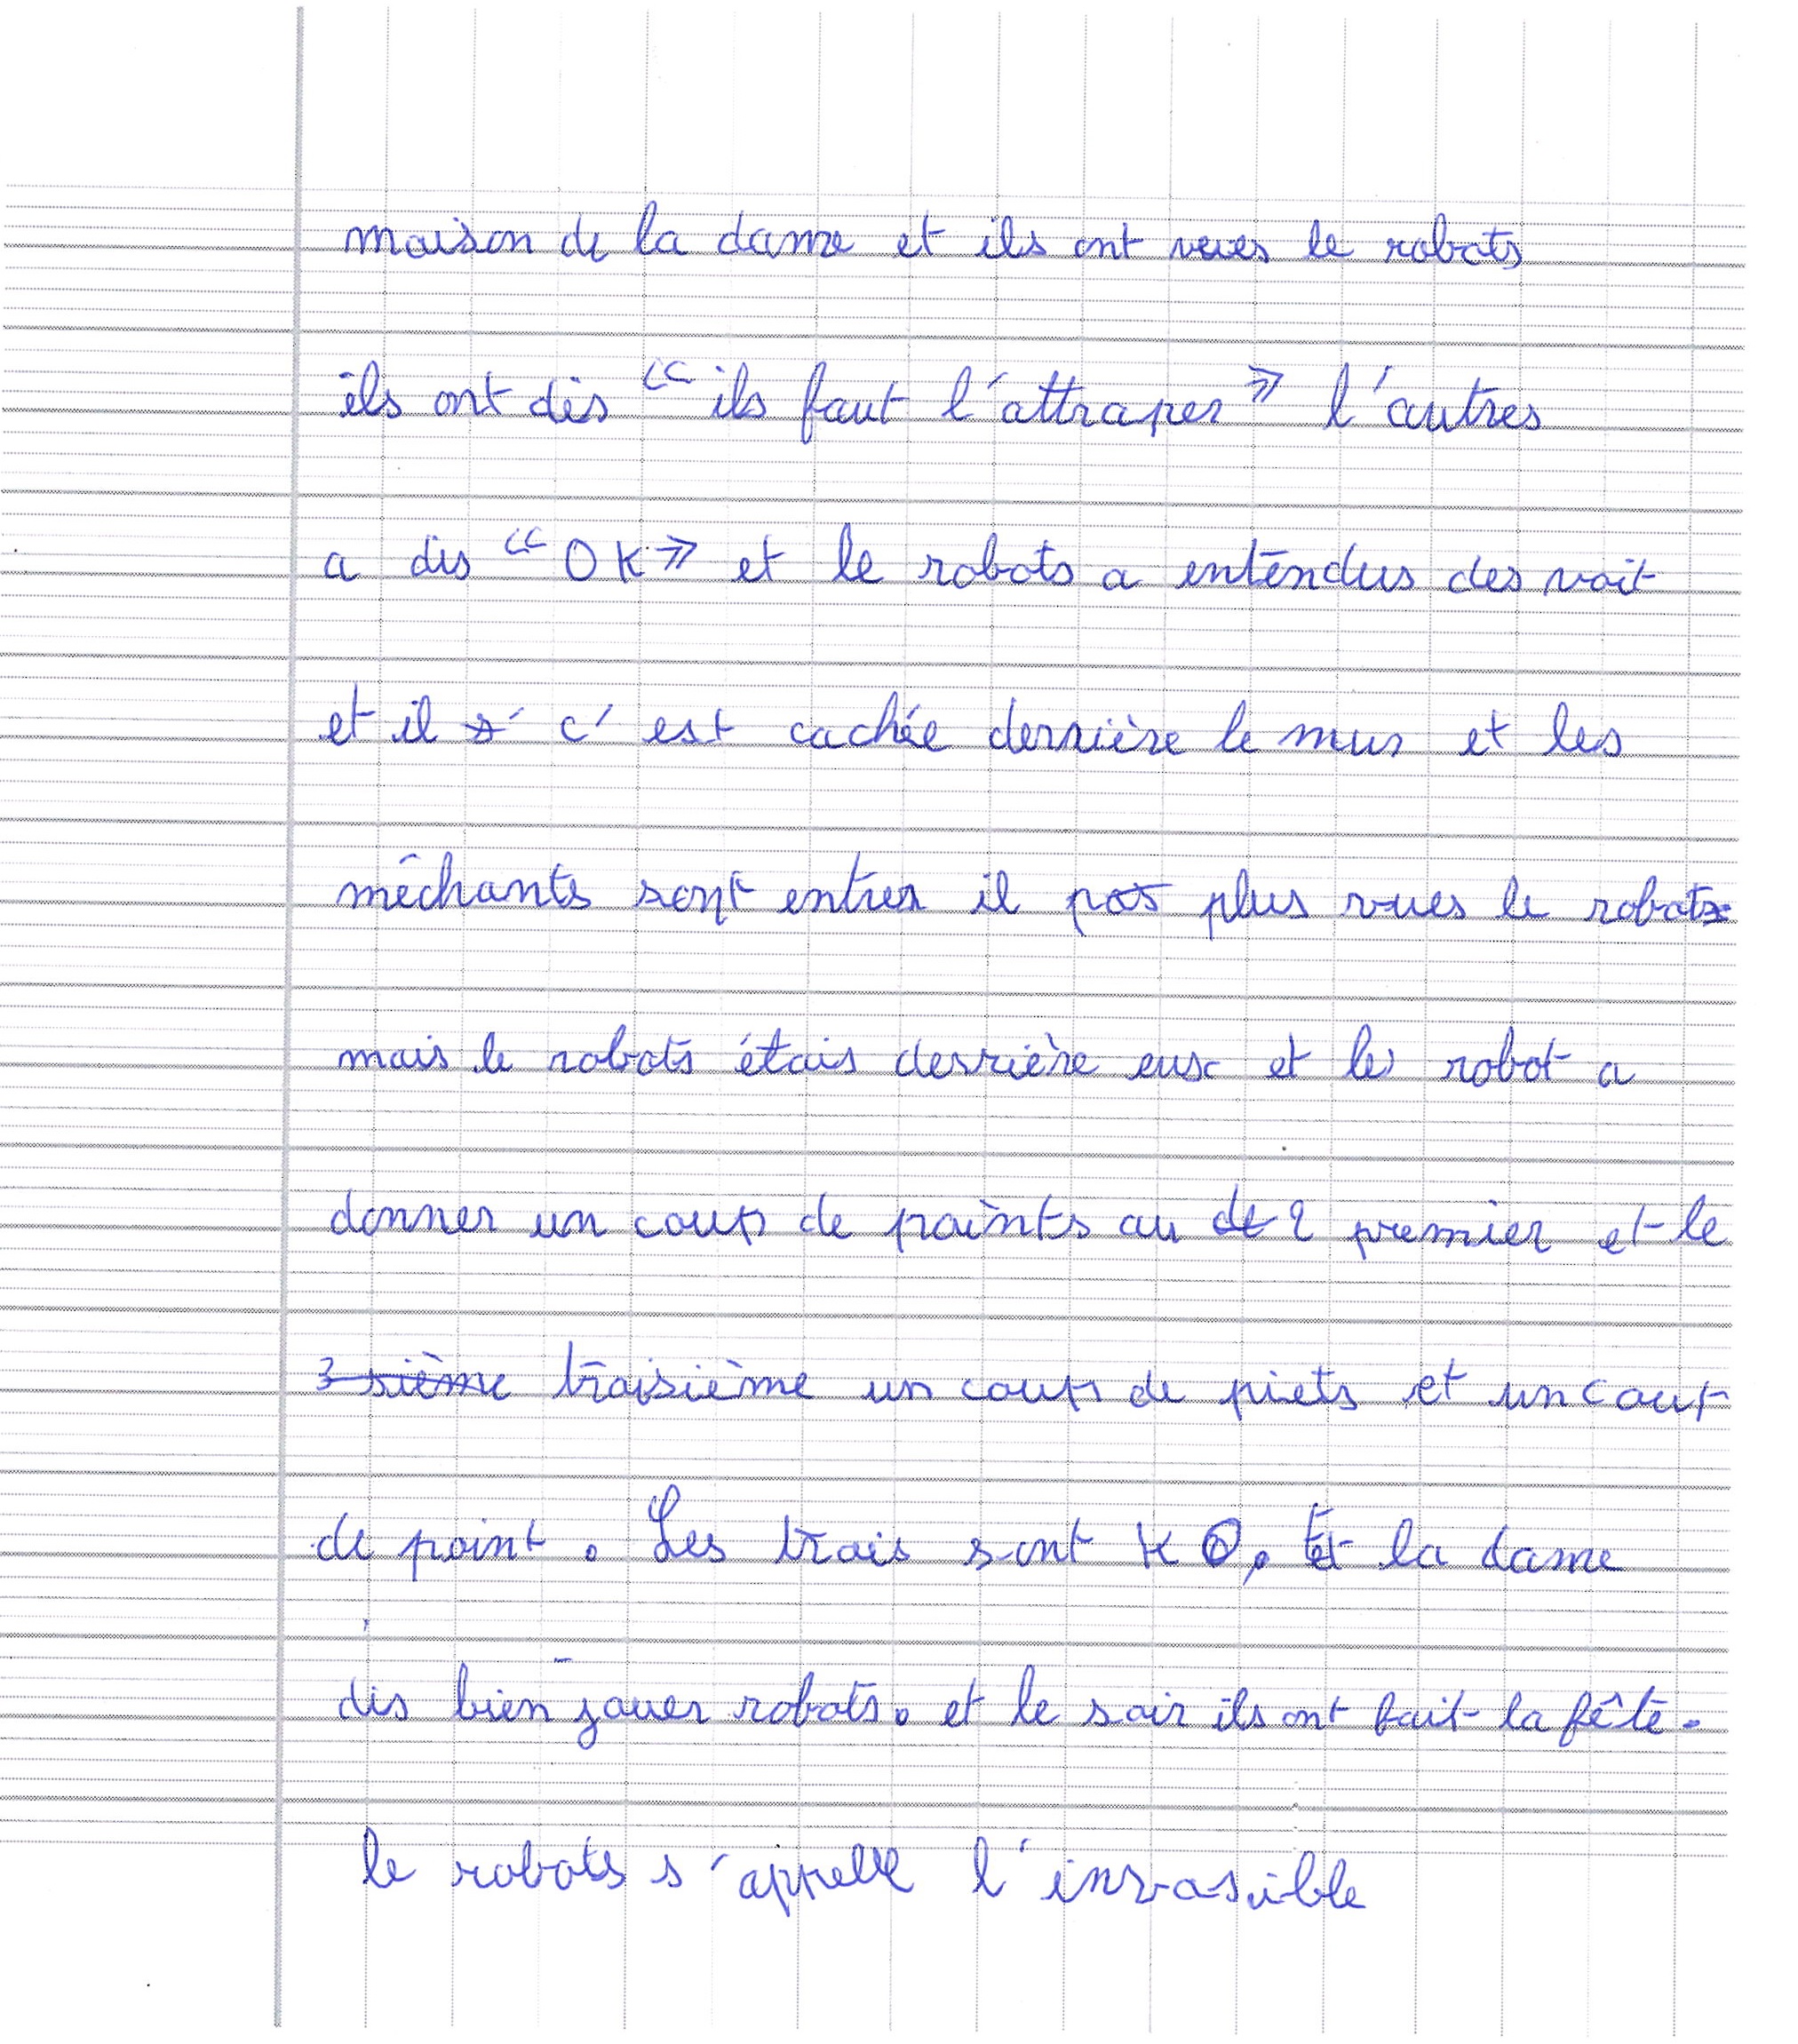 maison de la dame et ils ont vues le robots
ils ont dis " ils faut l'attraper " l'autres
a dis " OK " et le robots a entendus des voit
et il s' c'est cachée derrière le mur et les
méchants sont entrer il pas plus vues le robots
mais le robots étais derrière eux et le robot a
donner un coup de points au de 2 premier et le
3 sième troisième un coup de piets et un coup
de point. Les trois sont KO. Et la dame
dis bien jouer robots. et le soir ils ont fait la fête.
le robots s'appelle l'invasible